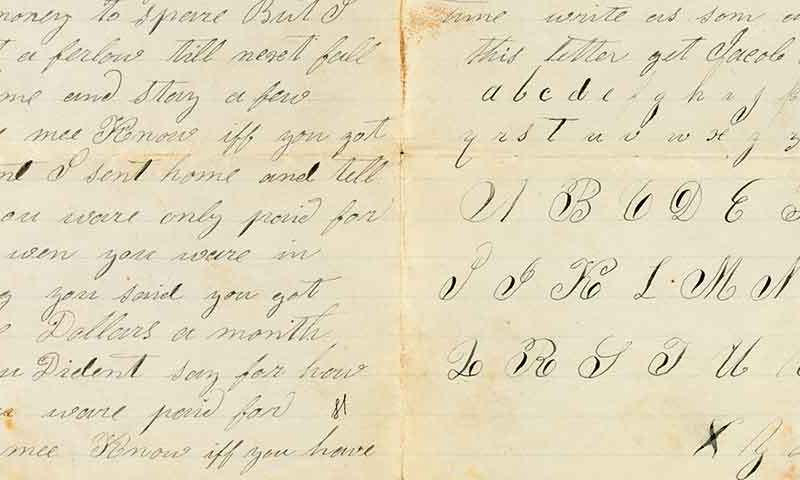 money to spare But I
a ferlow till next fall
me and stay a few
mee Know iff you got
I sent home and tell
ou ware only paid for
wen you ware in
you said you got
Dollars a month
Dident say for how
ware paid for
mee Know iff you have
write as som
this letter get Jacob
a b c d e g h i j
q r s t u v w x y z
A B C D E
I J K L M N
Q R S T U
X Y